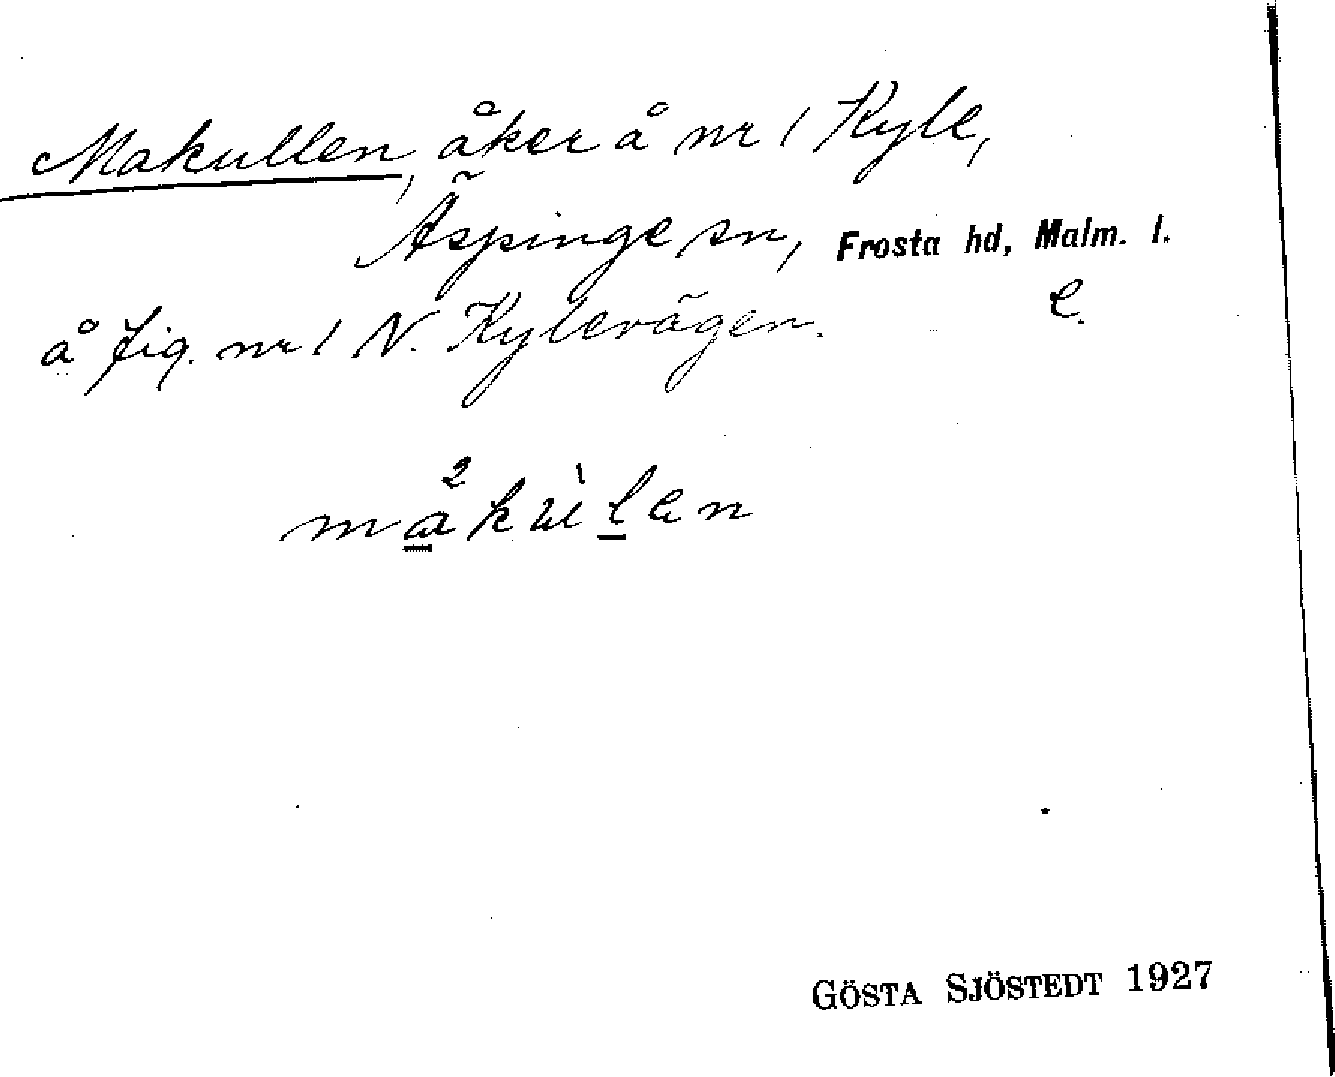 Makullen, åker å nr 1 Kyle,
Äspinge sn, Frosta hd, Malm. l.
å fig. nr 1 N. Kylevägen. e.
måkulen
GÖSTA SJÖSTEDT 1927